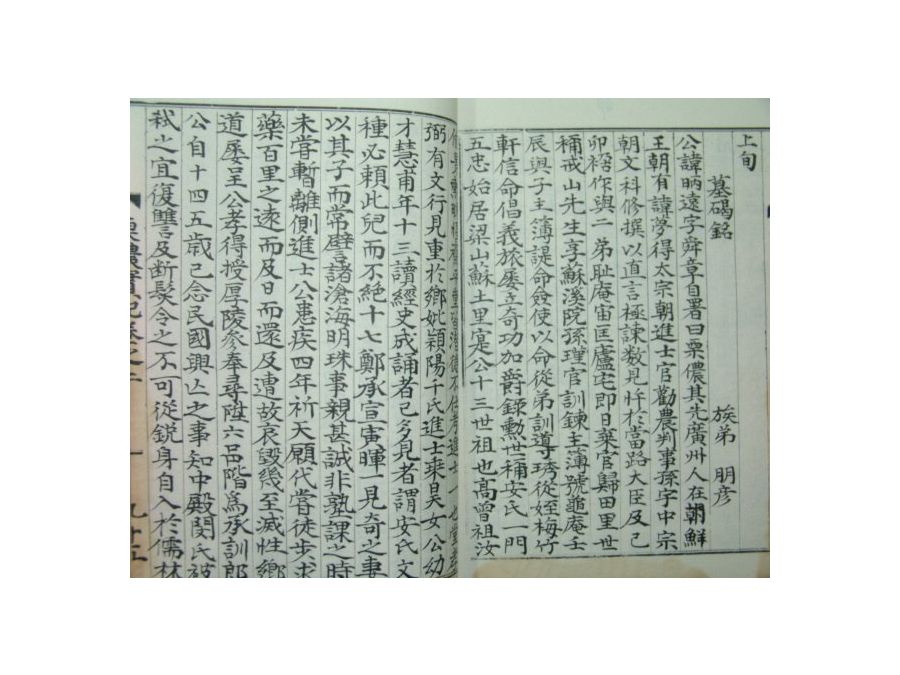 上旬
墓碣銘
族弟 朋彦
公諱昞遠字舜章自署曰栗儂其先廣州人在朝鮮
王朝有諱旁得太宗朝進士官勸農判事孫字中宗
朝文科修撰以道言極諫数見忤於當路大臣及己
卯禍作與二弟耻庵宙匡廬宅即日棄官歸田里世
稱戒山先生享蘇溪院孫瑾官訓鍊主簿號龜庵壬
辰與子主簿諟命發使以命從弟訓導琇從姪梅竹
軒信命倡義旅屡立奇功加爵錄勲世稱安氏一門
五忠始居梁山蘇土里寔公十三世祖也高曾祖汝
弼有文行見重於鄉妣潁陽千氏進士来昊女公幼
才慧甫年十三讀經史成誦者已多見者謂安氏文
種必頼此兒而不絶十七鄭承宣寅暉一見奇之妻
以其子而常譬諸滄海明珠事親甚誠非塾課之時
未嘗暫離側進士公患疾四年祈天願代嘗徒步求
藥百里之遠而及日而還及遭故哀毀幾至滅性鄉
道屡呈公孝得授厚陵参奉尋陞六品階爲承訓郎
公自十四五歳已念民國興亾之事知中殿閔氏被
弑之宜復讐及断髮令之不可從鋭身自入於儒林